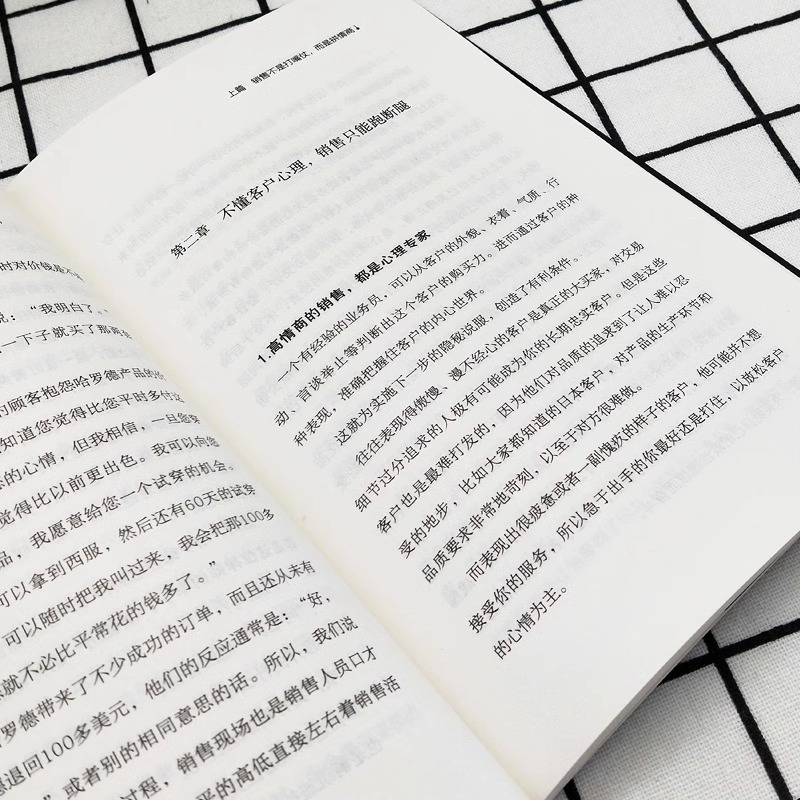 时对价钱是不
说：“我明白了
一下子就买了那两
的顾客抱怨哈罗德产品的价
知道您觉得比您平时多付
的心情，但我相信，一旦您穿
觉得比以前更出色。我可以向您
品，我愿意给您一个试穿的机会。
可以拿到西服，然后还有60天的试穿
可以随时把我叫过来，我会把那100多
就不必比平常花的钱多了。”
罗德带来了不少成功的订单，而且还从未有
退回100多美元，他们的反应通常是：“好，
”或者别的相同意思的话。所以，我们说
过程，销售现场也是销售人员口才
的高低直接左右着销售活
上篇 销售不是打嘴仗，而是拼情商
第二章 不懂客户心理，销售只能跑断腿
1.高情商的销售，都是心理专家
一个有经验的业务员，可以从客户的外貌、衣着、气质、行
动、言谈举止等判断出这个客户的购买力。进而通过客户的种
种表现，准确把握住客户的内心世界。
这就为实施下一步的隐秘说服，创造了有利条件。
往往表现得傲慢、漫不经心的客户是真正的大买家，对交易
细节过分追求的人极有可能成为你的长期忠实客户。但是这些
客户也是最难打发的，因为他们对品质的追求到了让人难以忍
受的地步，比如大家都知道的日本客户，对产品的生产环节和
品质要求非常地苛刻，以至于对方很难做。
而表现出很疲惫或者一副愧疚的样子的客户，他可能并不想
接受你的服务，所以急于出手的你最好还是打住，以放松客户
的心情为主。